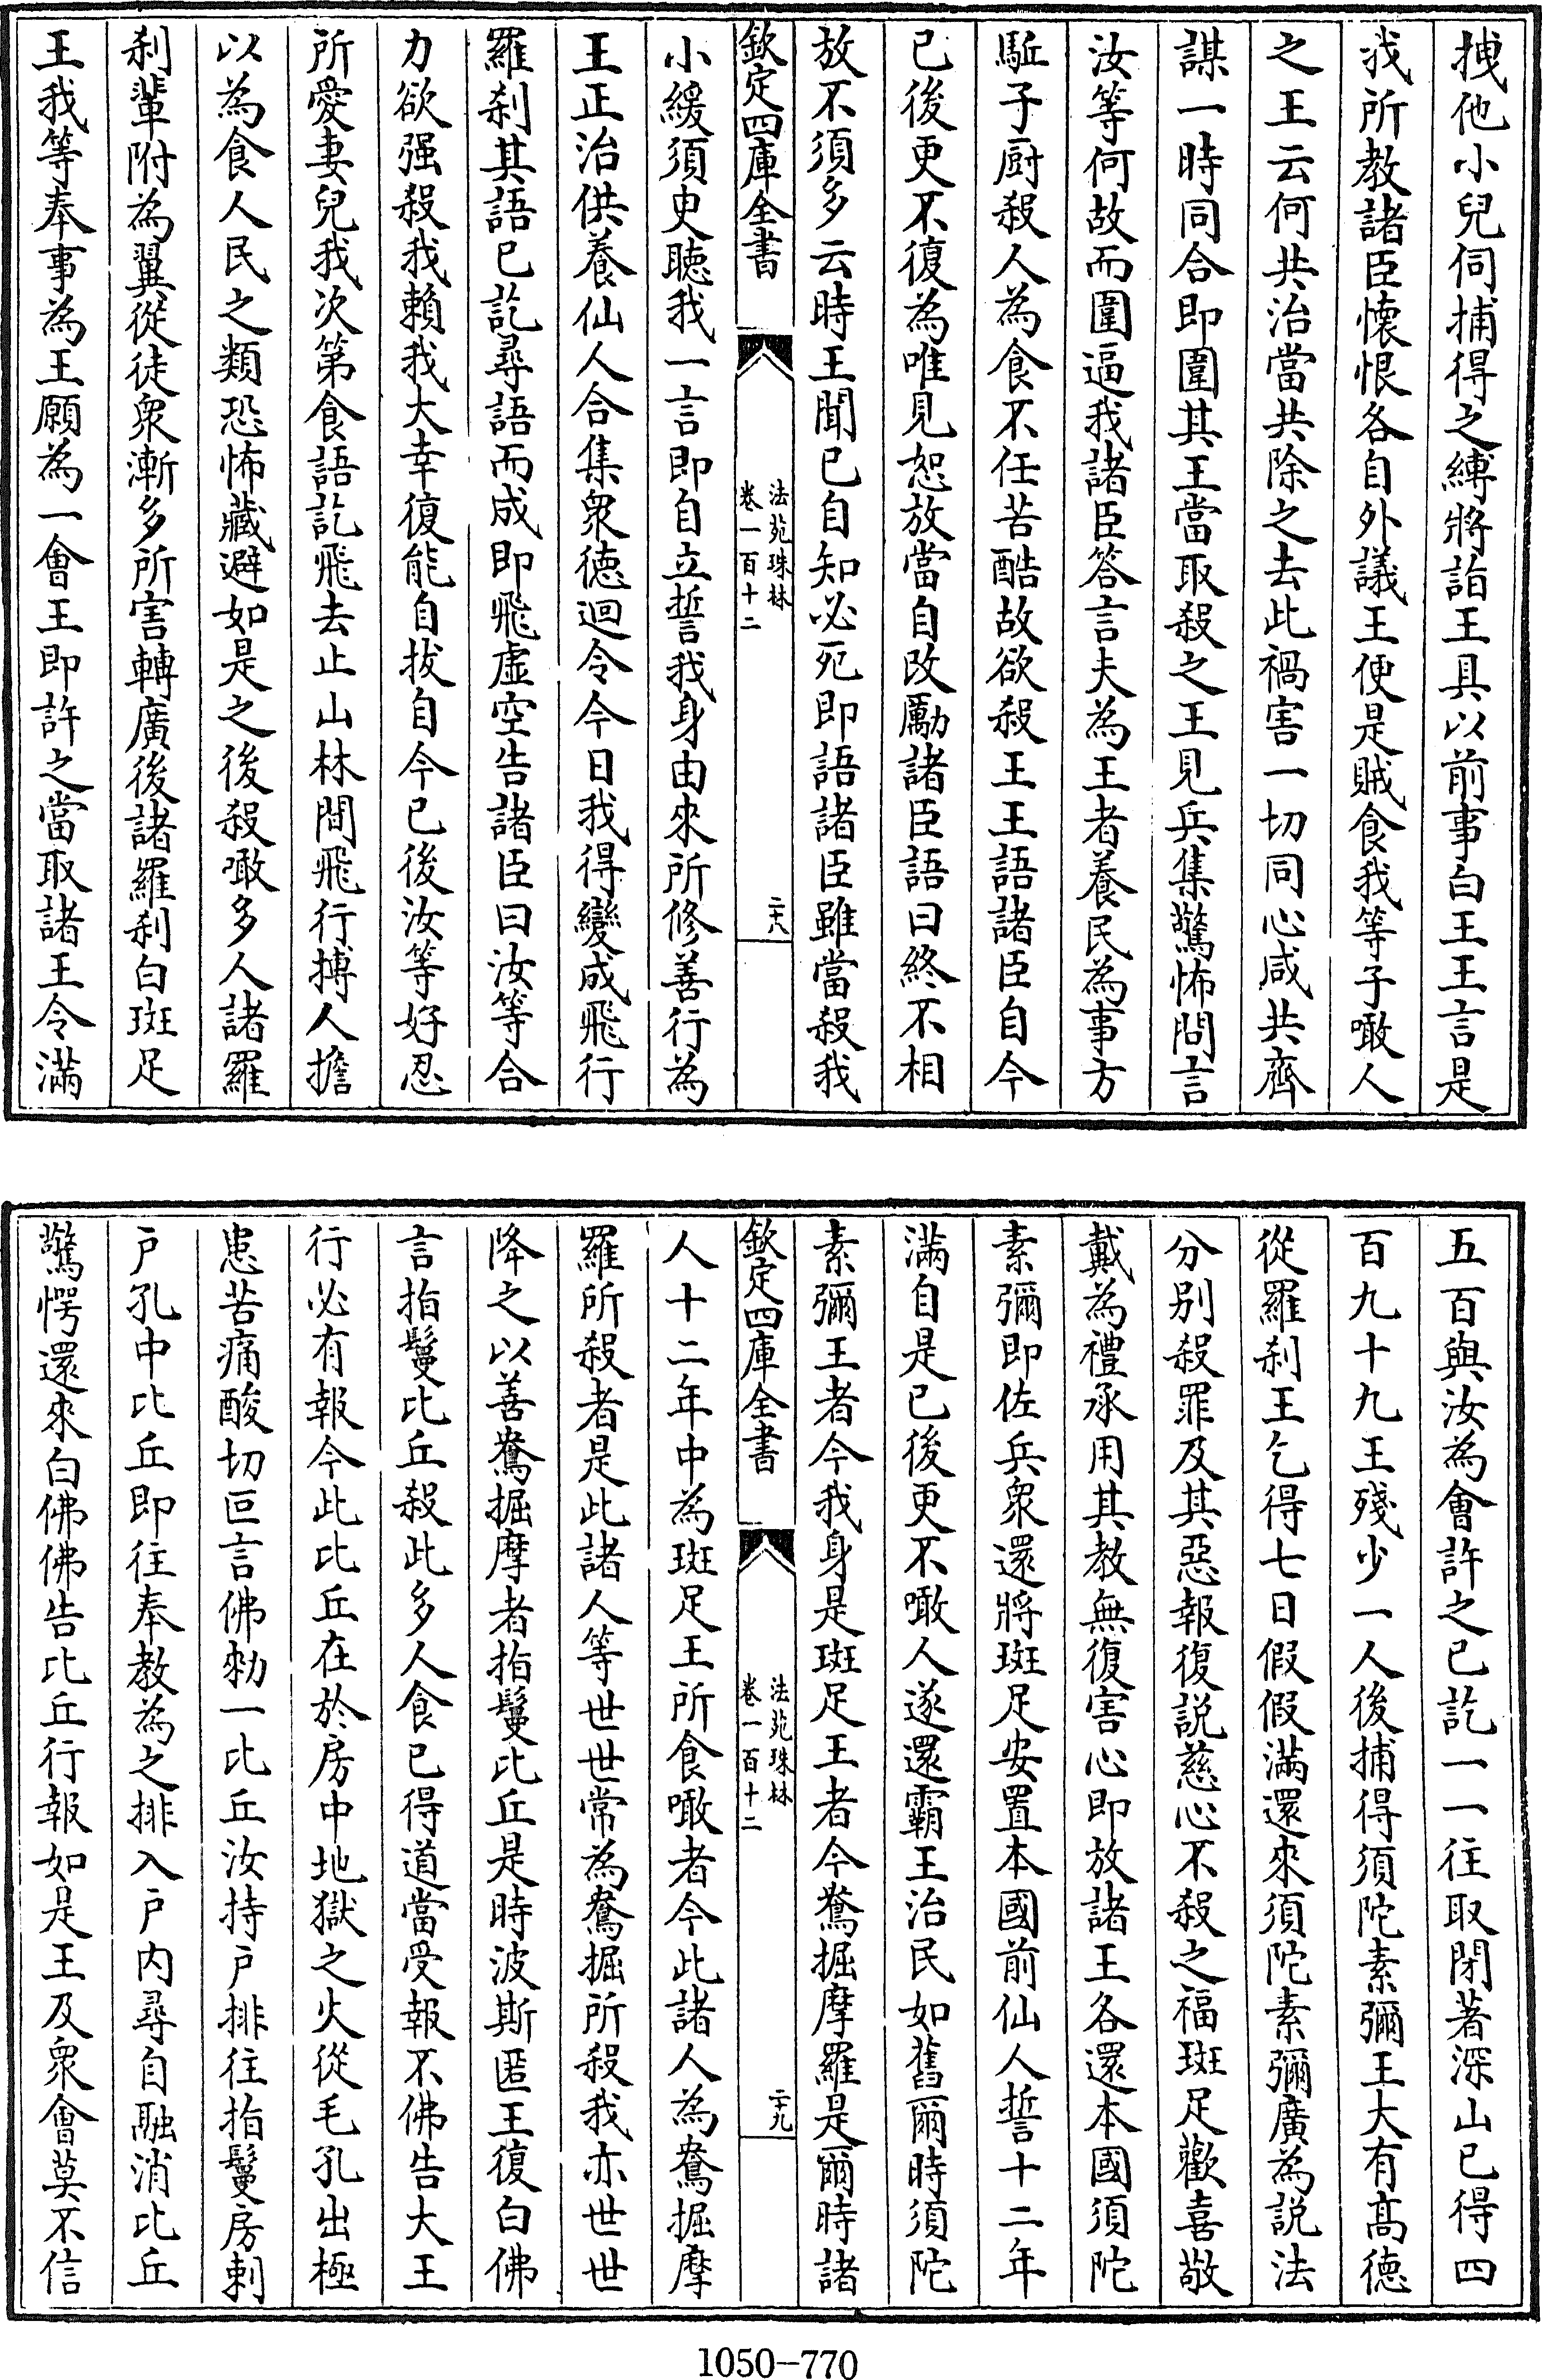 拽他小兒伺捕得之縛將詣王具以前事白王王言是
我所教諸臣懷恨各自外議王便是賊食我等子噉人
之王云何共治當共除之去此禍害一切同心咸共齊
謀一時同合即圍其王當取殺之王見兵集驚怖問言
汝等何故而圍逼我諸臣答言夫為王者養民為事方
駈子厨殺人為食不任苦酷故欲殺王王語諸臣自今
已後更不復為唯見恕放當自改勵諸臣語曰終不相
放不須多云時王聞已自知必死即語諸臣雖當殺我
欽定四庫全書
法苑珠林
卷一百十二
二十八
小緩須臾聴我一言即自立誓我身由來所修善行為
王正治供養仙人合集衆徳迴令今日我得變成飛行
羅刹其語已訖尋語而成即飛虛空告諸臣曰汝等合
力欲强殺我賴我大幸復能自拔自今已後汝等好忍
所愛妻兒我次第食語訖飛去止山林間飛行搏人擔
以為食人民之類恐怖藏避如是之後殺噉多人諸羅
刹輩附為翼從徒衆漸多所害轉廣後諸羅刹白斑足
王我等奉事為王願為一會王即許之當取諸王令滿
五百與汝為會許之已訖一一往取閉著深山已得四
百九十九王殘少一人後捕得須陀素彌王大有髙徳
從羅刹王乞得七日假假滿還來須陀素彌廣為説法
分别殺罪及其惡報復説慈心不殺之福斑足歡喜敬
戴為禮承用其教無復害心即放諸王各還本國須陀
素彌即佐兵衆還將斑足安置本國前仙人誓十二年
滿自是已後更不噉人遂還霸王治民如舊爾時須陀
素彌王者今我身是斑足王者今鴦掘摩羅是爾時諸
欽定四庫全書
法苑珠林
卷一百十二
二十九
人十二年中為斑足王所食噉者今此諸人為鴦掘摩
羅所殺者是此諸人等世世常為鴦掘所殺我亦世世
降之以善鴦掘摩者指鬘比丘是時波斯匿王復白佛
言指鬘比丘殺此多人食已得道當受報不佛告大王
行必有報今此比丘在於房中地獄之火從毛孔出極
患苦痛酸切叵言佛勑一比丘汝持户排往指鬘房刺
户孔中比丘即往奉教為之排入户内尋自融消比丘
驚愕還來白佛佛告比丘行報如是王及衆會莫不信
1050-770